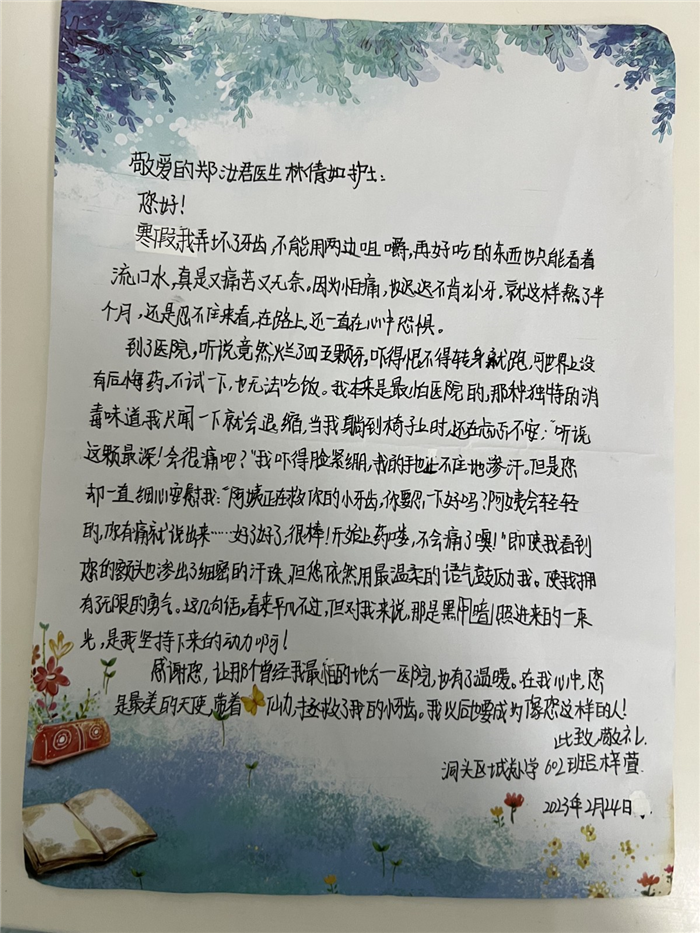 敬爱的郑汝君医生林倩如护士：
您好！
寒假我弄坏了牙齿，不能用两边咀嚼，再好吃的东西也只能看着
流口水，真是又痛苦又无奈。因为怕痛，也迟迟不肯去补牙。就这样熬了半
个月，还是忍不住来看，在路上还一直在心中恐惧。
到了医院，听说竟然烂了四五颗牙，吓得恨不得转身就跑，可世界上没
有后悔药。不试一下，也无法吃饭。我本来是最怕医院的，那种独特的消
毒味道，我只闻一下就会退缩，当我躺到椅子上时，还在忐忑不安：“听说
这颗最深！会很痛吧？”我吓得脸紧绷，我的手也止不住地渗汗。但是您
却一直细心安慰我：“阿姨正在救你的小牙齿，你要忍一下好吗？阿姨会轻轻
的，你有痛就说出来……好了好了，很棒！开始上药喽，不会痛了噢！”即使我看到
您的额头也渗出了细密的汗珠，但您依然用最温柔的语气鼓励我。使我拥
有了无限的勇气。这几句话，看来平凡不过，但对我来说，那是黑暗照进来的一束
光，是我坚持下来的动力啊！
感谢您，让那个曾经我最怕的地方—医院，也有了温暖。在我心中，您
是最美的天使，带着仙力拯救了我的小牙齿。我以后也要成为像您这样的人！
此致敬礼
洞头区城关小学602班 梓萱
2023年2月24日